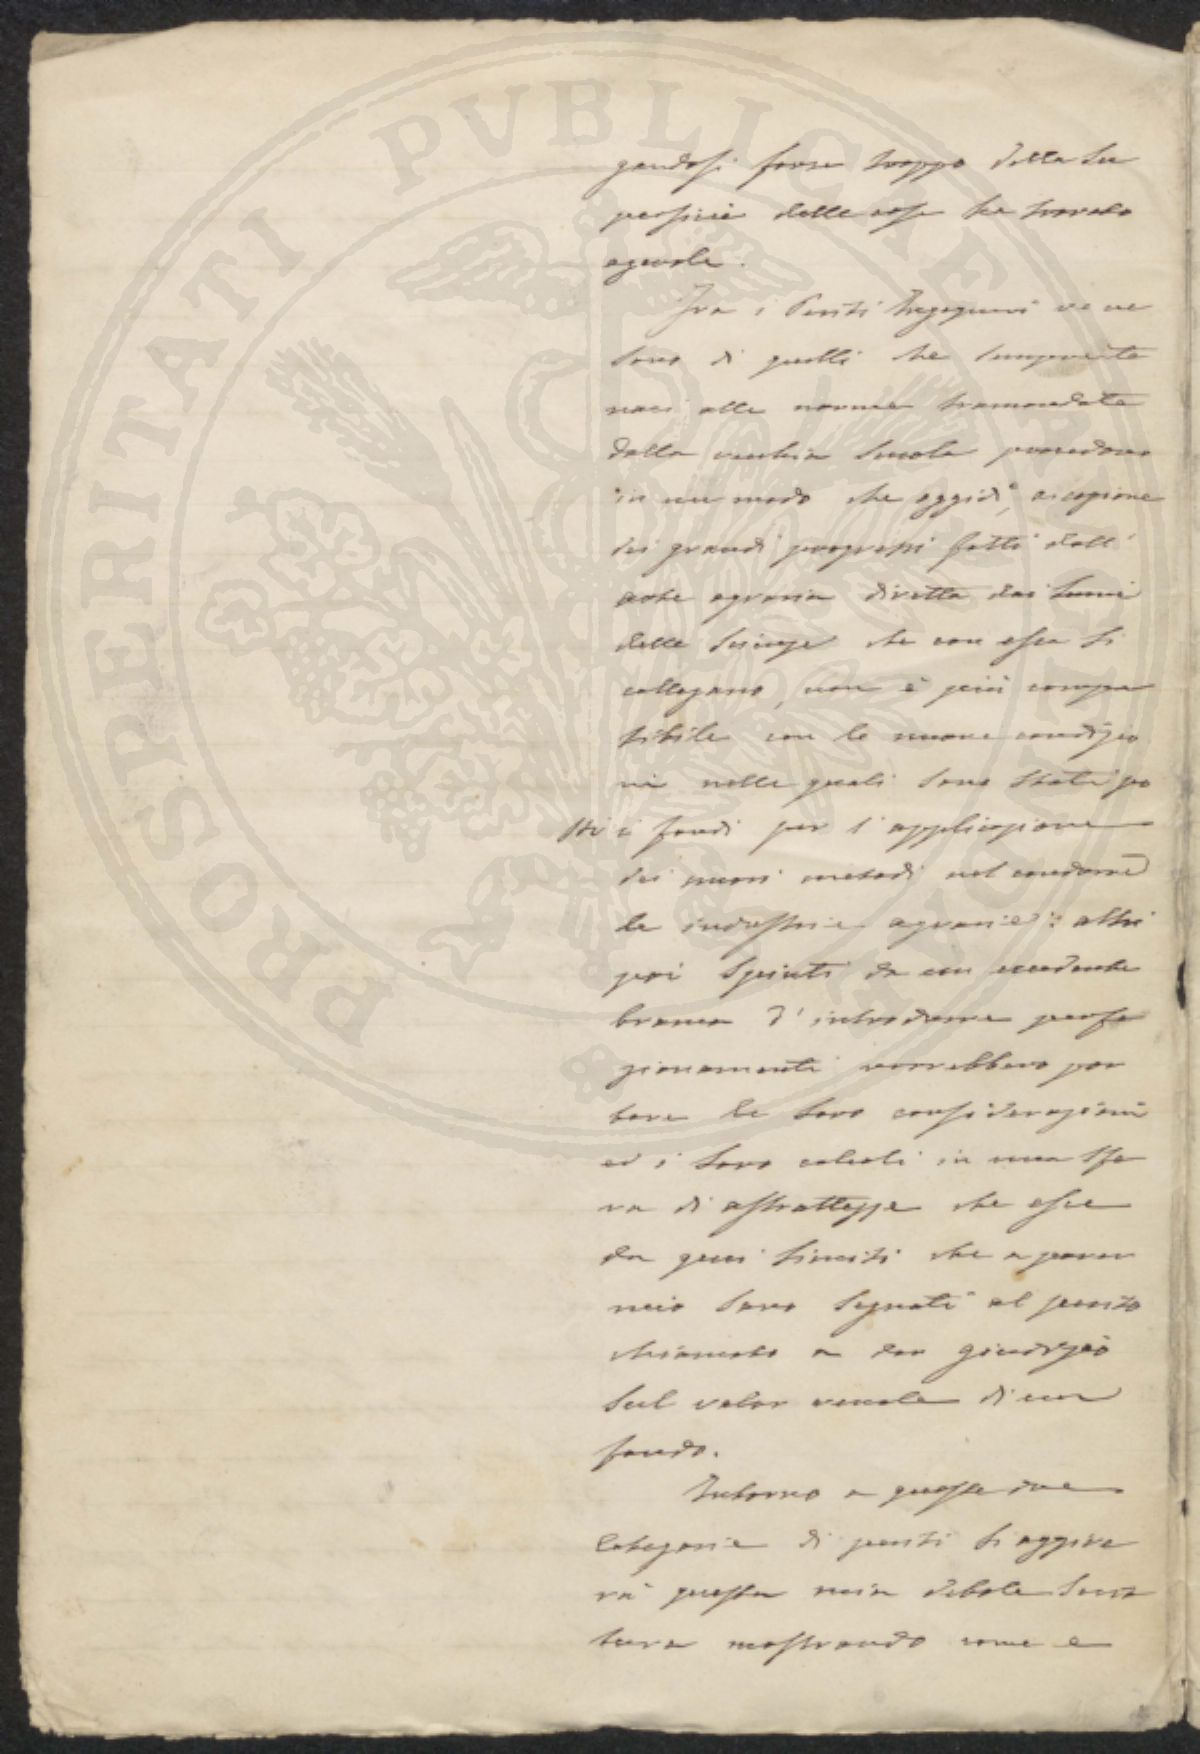 gandosi forse troppo della Su
perficie delle cose ha trovato
agevole.
Fra i Periti Ingegneri ve ne
sono di quelli che
naci alle norme tramandate
dalla vecchia Scuola procedono
in un modo che oggidì, a cagione
dei grandi progressi fatti dall'
arte agraria diretta dai lumi
delle Scienze che con essa si
collegano, non è più compa
tibile con le nuove condizio
ni nelle quali sono stati po
sti i fondi per l'applicazione
dei nuovi metodi nel condurre
le industrie agrarie: altri
poi spinti da una eccedente
brama d'introdurre perfe
zionamenti vorrebbero por
tare le loro considerazioni
ed i loro calcoli in una sfe
ra di astrattezze che esce
da quei limiti che a parer
mio sono segnati al perito
chiamato a dar giudizio
sul valor venale di un
fondo.
Intorno a queste due
Categorie di periti si aggire
rà questa mia debole Scrit
tura mostrando come e
PROSPERITATI PVBLICAE